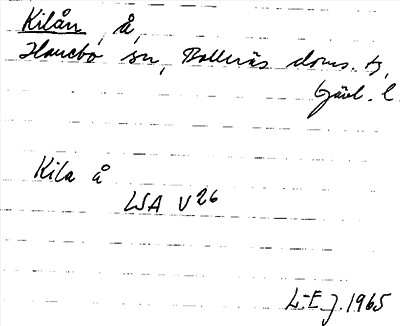 Kilån, å,
Hanebo sn, Bollnäs doms. h,
Gävl. l.
Kila å
LSA V26
L-E J. 1965